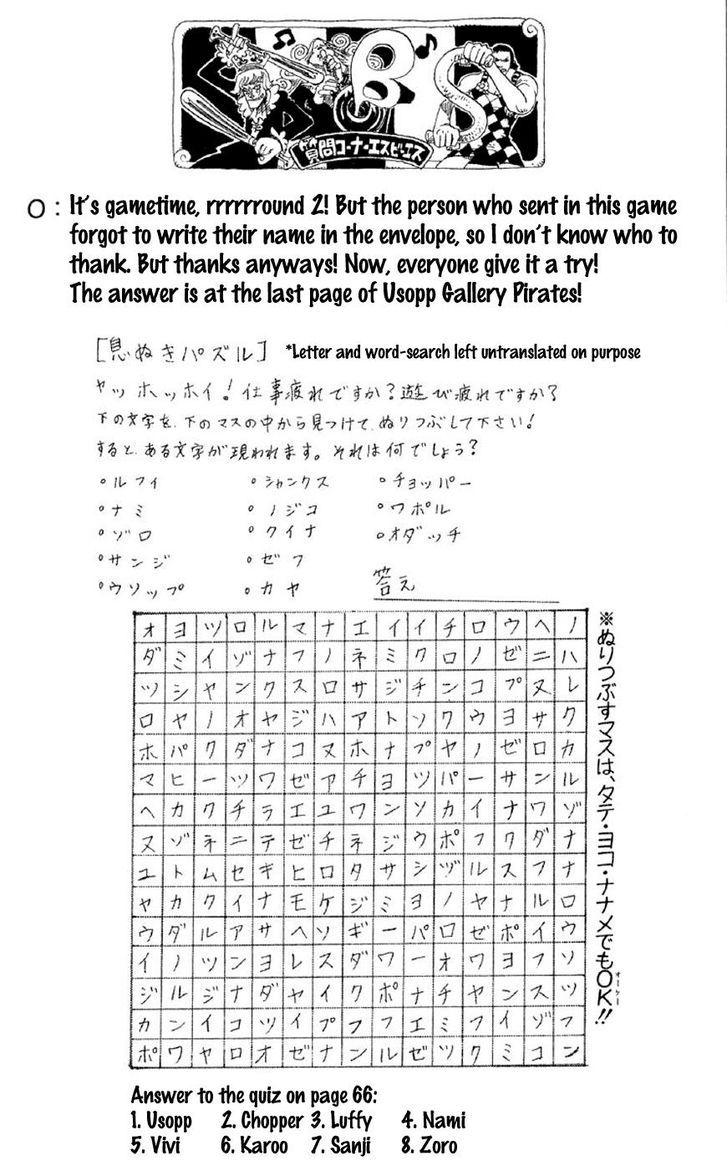 SBS
質問コーナーエスビーエス
O : It's gametime, rrrrrround 2! But the person who sent in this game
forgot to write their name in the envelope, so I don't know who to
thank. But thanks anyways! Now, everyone give it a try!
The answer is at the last page of Usopp Gallery Pirates!
[息ぬきパズル] *Letter and word-search left untranslated on purpose
ヤッホッホイ!仕事疲れですか?遊び疲れですか?
下の文字を、下のマスの中から見つけて、ぬりつぶして下さい!
すると、ある文字が現われます。それは何でしょう?
°ルフィ °シャンクス °チョッパー
°ナミ °ノジコ °ワポル
°ゾロ °クイナ °オダッチ
°サンジ °ゼフ
°ウソップ °カヤ 答え
オヨツロルマナエイイチロウヘノ
ダミイゾナフノネミクロノゼニハ
ツシヤンクスロサジチンコプヌレ
ロヤノオヤジハアトソワウヨサク
ホパクダナコヌホナプヤノゼロカ
マヒーツワゼアチヨツパーサンル
ヘカクチラエユワンソカイナワゾ
ヌゾネニテゼチネジウポフクダナ
ユトムセキヒロタサシヅルスフナ
ヤカクイナモケジミヨノヤナルロ
ウダルアサヘソギーパロゼポイウ
イノツンヨレスダワーオワヨフソ
ジルジナダヤイクポナチヤンスツ
カンイコツイプフフエミフイゾフ
ポワヤロオゼナンルゼツクミコン
※ぬりつぶすマスは、タテ・ヨコ・ナナメでもOK!!
オーケー
Answer to the quiz on page 66:
1. Usopp 2. Chopper 3. Luffy 4. Nami
5. Vivi 6. Karoo 7. Sanji 8. Zoro